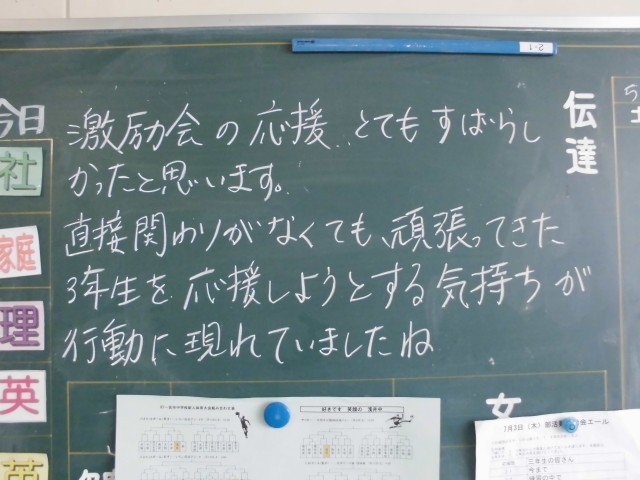 2-1
今日
社
家庭
理
英
英
激励会の応援、とてもすばらし
かったと思います。
直接関わりがなくても、頑張ってきた
3年生を応援しようとする気持ちが
行動に現れていましたね
伝達
女
好きです 笑顔の 浅井中
7月3日（木）部活動
会エール
三年生の皆さん
今まで
練習の中で